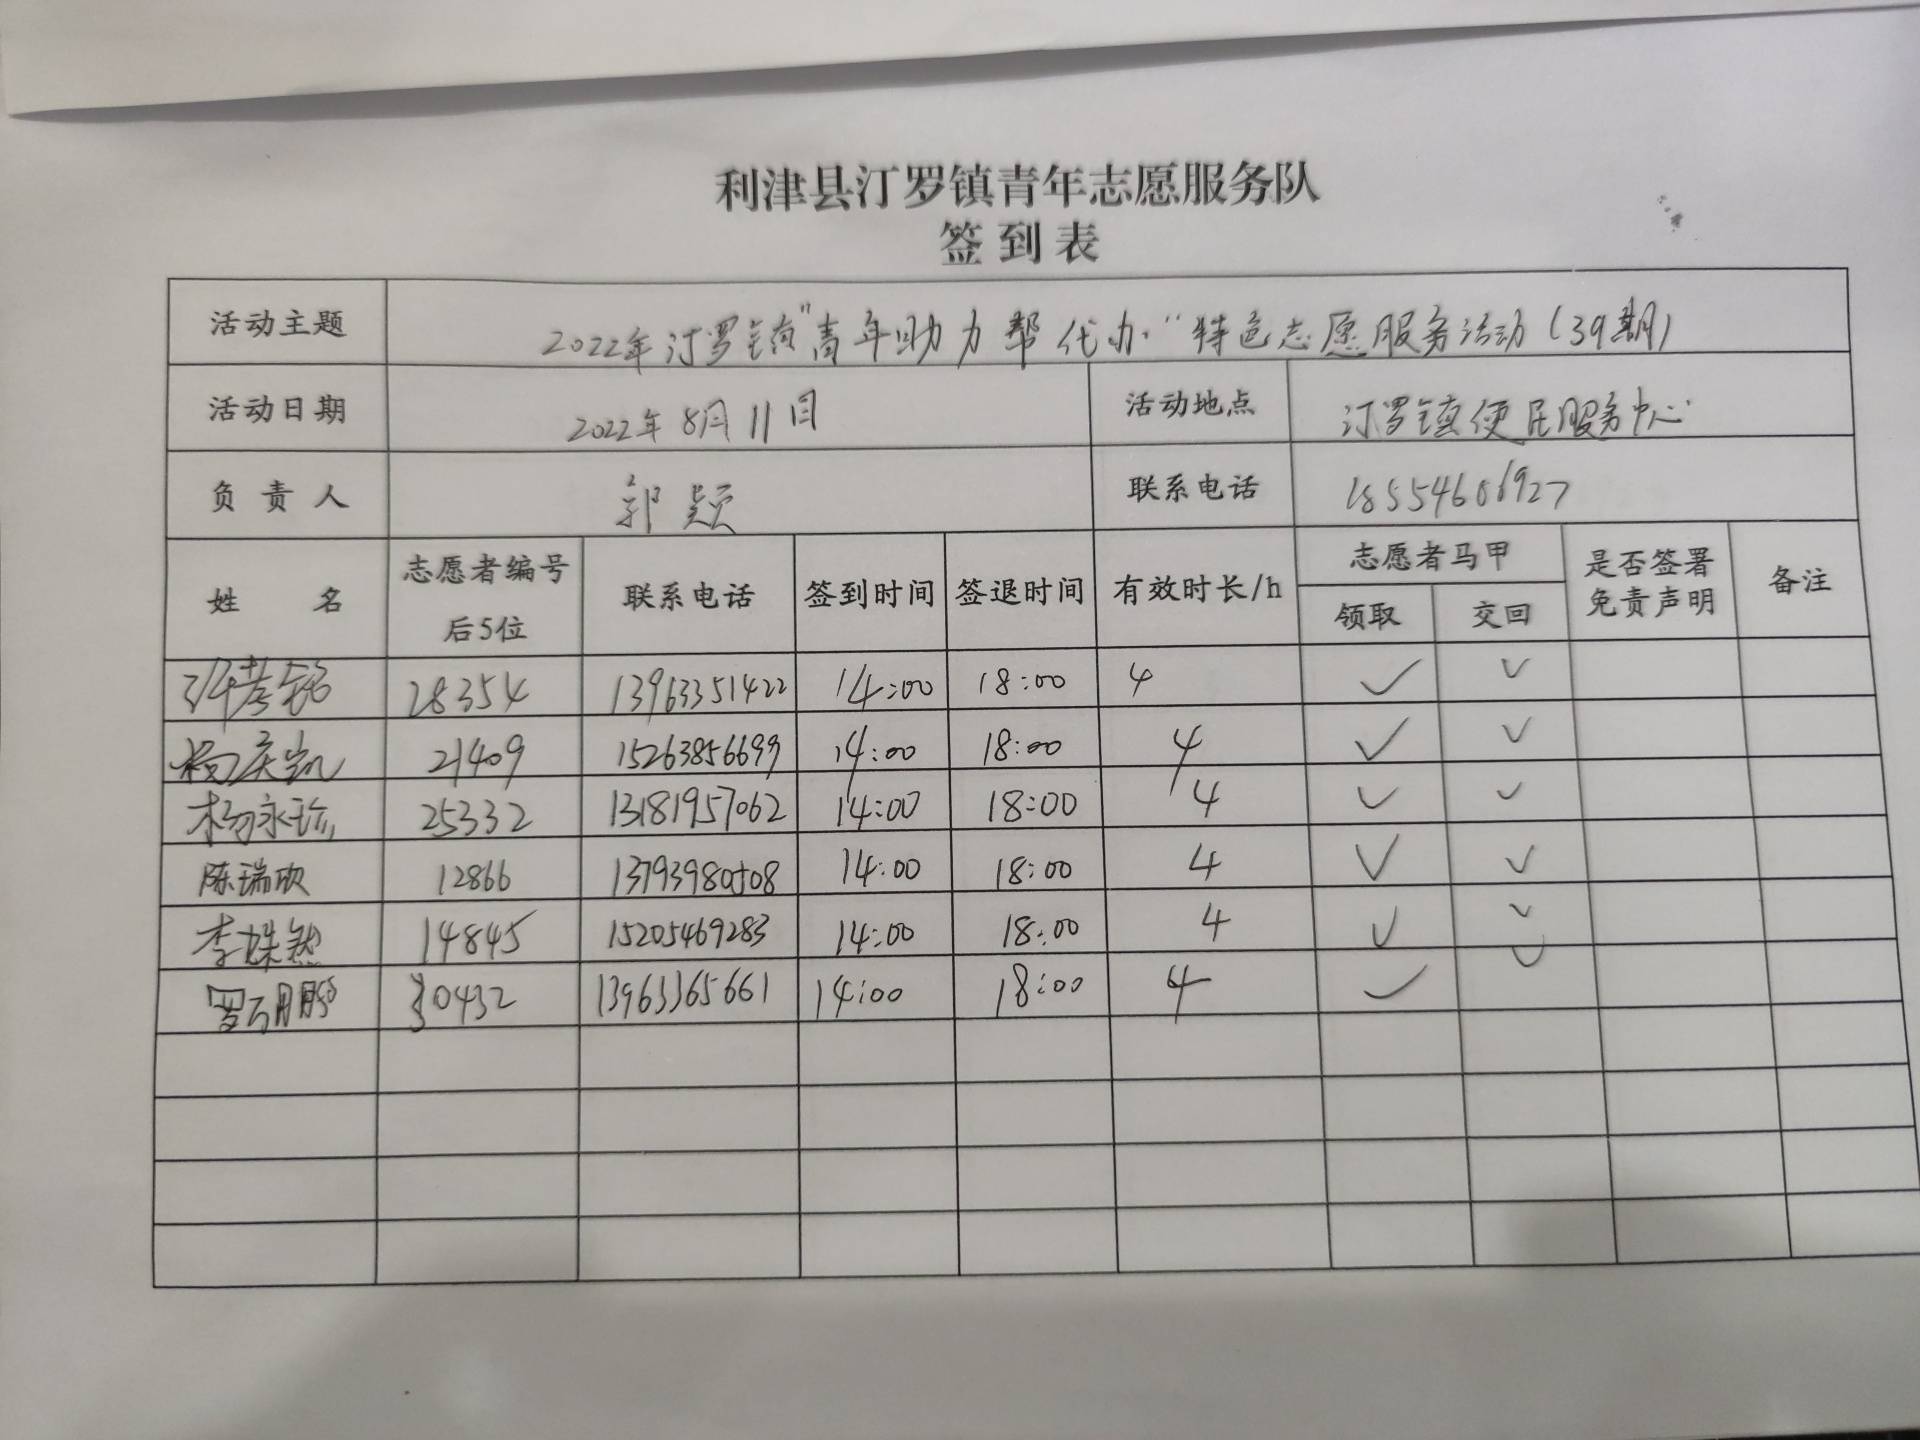 利津县汀罗镇青年志愿服务队
签到表
活动主题 2022年汀罗镇"青年助力帮代办"特色志愿服务活动(39期)
活动日期 2022年8月11日 活动地点 汀罗镇便民服务中心
负责人 郭颖 联系电话 18554606927
姓名 志愿者编号后5位 联系电话 签到时间 签退时间 有效时长/h 志愿者马甲 领取 交回 是否签署免责声明 备注
28354 13963351422 14:00 18:00 4 ✓ ✓
杨庆凯 21409 15263856699 14:00 18:00 4 ✓ ✓
杨永珍 25332 13181957062 14:00 18:00 4 ✓ ✓
陈瑞欣 12866 13793980508 14:00 18:00 4 ✓ ✓
李姝然 14845 15205469283 14:00 18:00 4 ✓ ✓
30432 13963365661 14:00 18:00 4 ✓ ✓